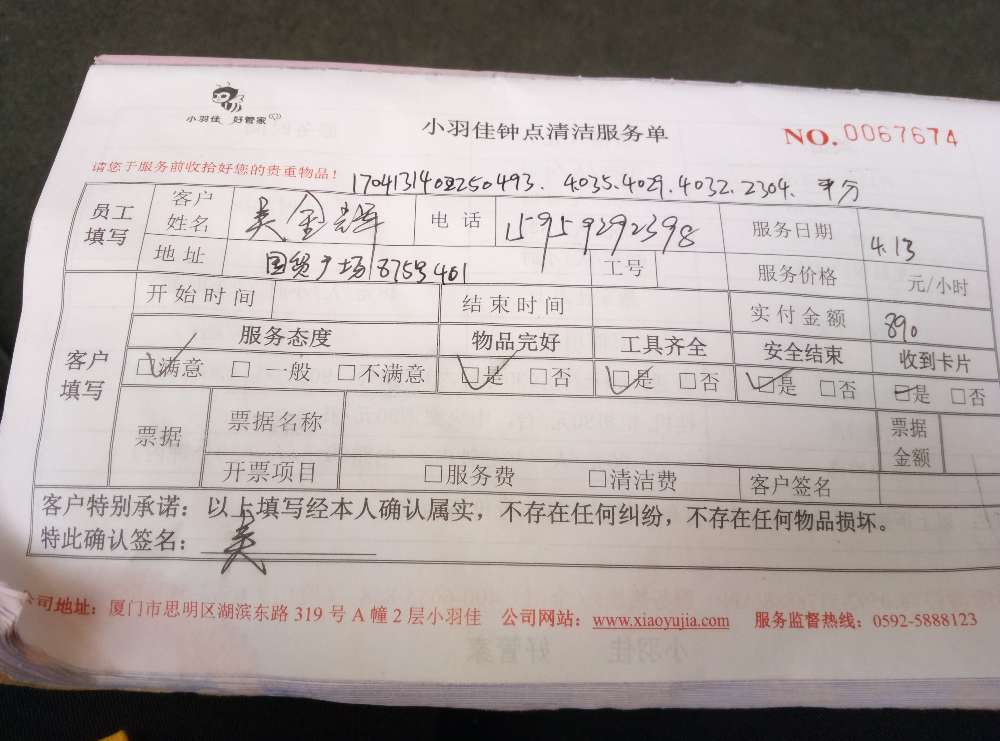 小羽佳 好管家
小羽佳钟点清洁服务单
NO. 0067674
请您于服务前收拾好您的贵重物品！
1704131402250493. 4035.4029.4032.2304. 平分
员工填写 客户姓名 吴金辉 电话 15959292398 服务日期 4.13
地址 国贸广场 401 工号 服务价格 元/小时
客户填写 开始时间 结束时间 实付金额 890
服务态度 物品完好 工具齐全 安全结束 收到卡片
□满意 □一般 □不满意 □是 □否 □是 □否 □是 □否 □是 □否
票据 票据名称 票据金额
开票项目 □服务费 □清洁费 客户签名
客户特别承诺：以上填写经本人确认属实，不存在任何纠纷，不存在任何物品损坏。
特此确认签名：吴
公司地址：厦门市思明区湖滨东路 319 号 A 幢 2 层小羽佳 公司网站：www.xiaoyujia.com 服务监督热线：0592-5888123